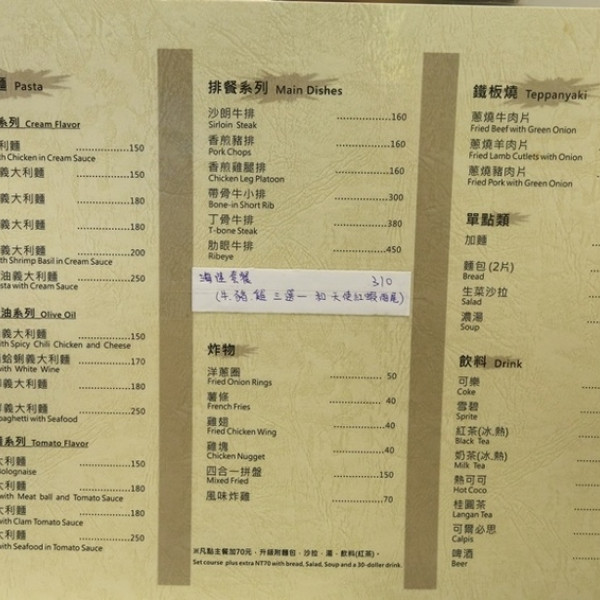 麵 Pasta
系列 Cream Flavor
利麵
th Chicken in Cream Sauce ..........150
義大利麵 ..........150
義大利麵 ..........180
義大利麵 ..........180
義大利麵 ..........200
ith Shrimp Basil in Cream Sauce
油義大利麵 ..........250
sta with Cream Sauce
油系列 Olive Oil
義大利麵 ..........150
with Spicy Chili Chicken and Cheese
蛤蜊義大利麵 ..........170
with White Wine
義大利麵 ..........180
義大利麵 ..........250
paghetti with Seafood
系列 Tomato Flavor
大利麵 ..........150
olognaise
大利麵 ..........180
with Meat ball and Tomato Sauce
大利麵 ..........180
with Clam Tomato Sauce
大利麵 ..........250
with Seafood in Tomato Sauce
排餐系列 Main Dishes
沙朗牛排 ..........160
Sirloin Steak
香煎豬排 ..........160
Pork Chops
香煎雞腿排 ..........160
Chicken Leg Platoon
帶骨牛小排 ..........300
Bone-in Short Rib
丁骨牛排 ..........380
T-bone Steak
肋眼牛排 ..........450
Ribeye
海陸套餐 310
(牛.豬.雞 三選一 和 天使紅蝦兩尾)
炸物
洋蔥圈 .......... 50
Fried Onion Rings
薯條 .......... 40
French Fries
雞翅 ..........40
Fried Chicken Wing
雞塊 ..........40
Chicken Nugget
四合一拼盤 ..........150
Mixed Fried
風味炸雞 ..........70
※凡點主餐加70元、升級附麵包、沙拉、湯、飲料(紅茶)。
Set course plus extra NT70 with bread, Salad, Soup and a 30-doller drink.
鐵板燒 Teppanyaki
蔥燒牛肉片
Fried Beef with Green Onion
蔥燒羊肉片
Fried Lamb Cutlets with Onion
蔥燒豬肉片
Fried Pork with Green Onion
單點類
加麵
麵包(2片)
Bread
生菜沙拉
Salad
濃湯
Soup
飲料 Drink
可樂
Coke
雪碧
Sprite
紅茶(冰.熱)
Black Tea
奶茶(冰.熱)
Milk Tea
熱可可
Hot Coco
桂圓茶
Langan Tea
可爾必思
Calpis
啤酒
Beer